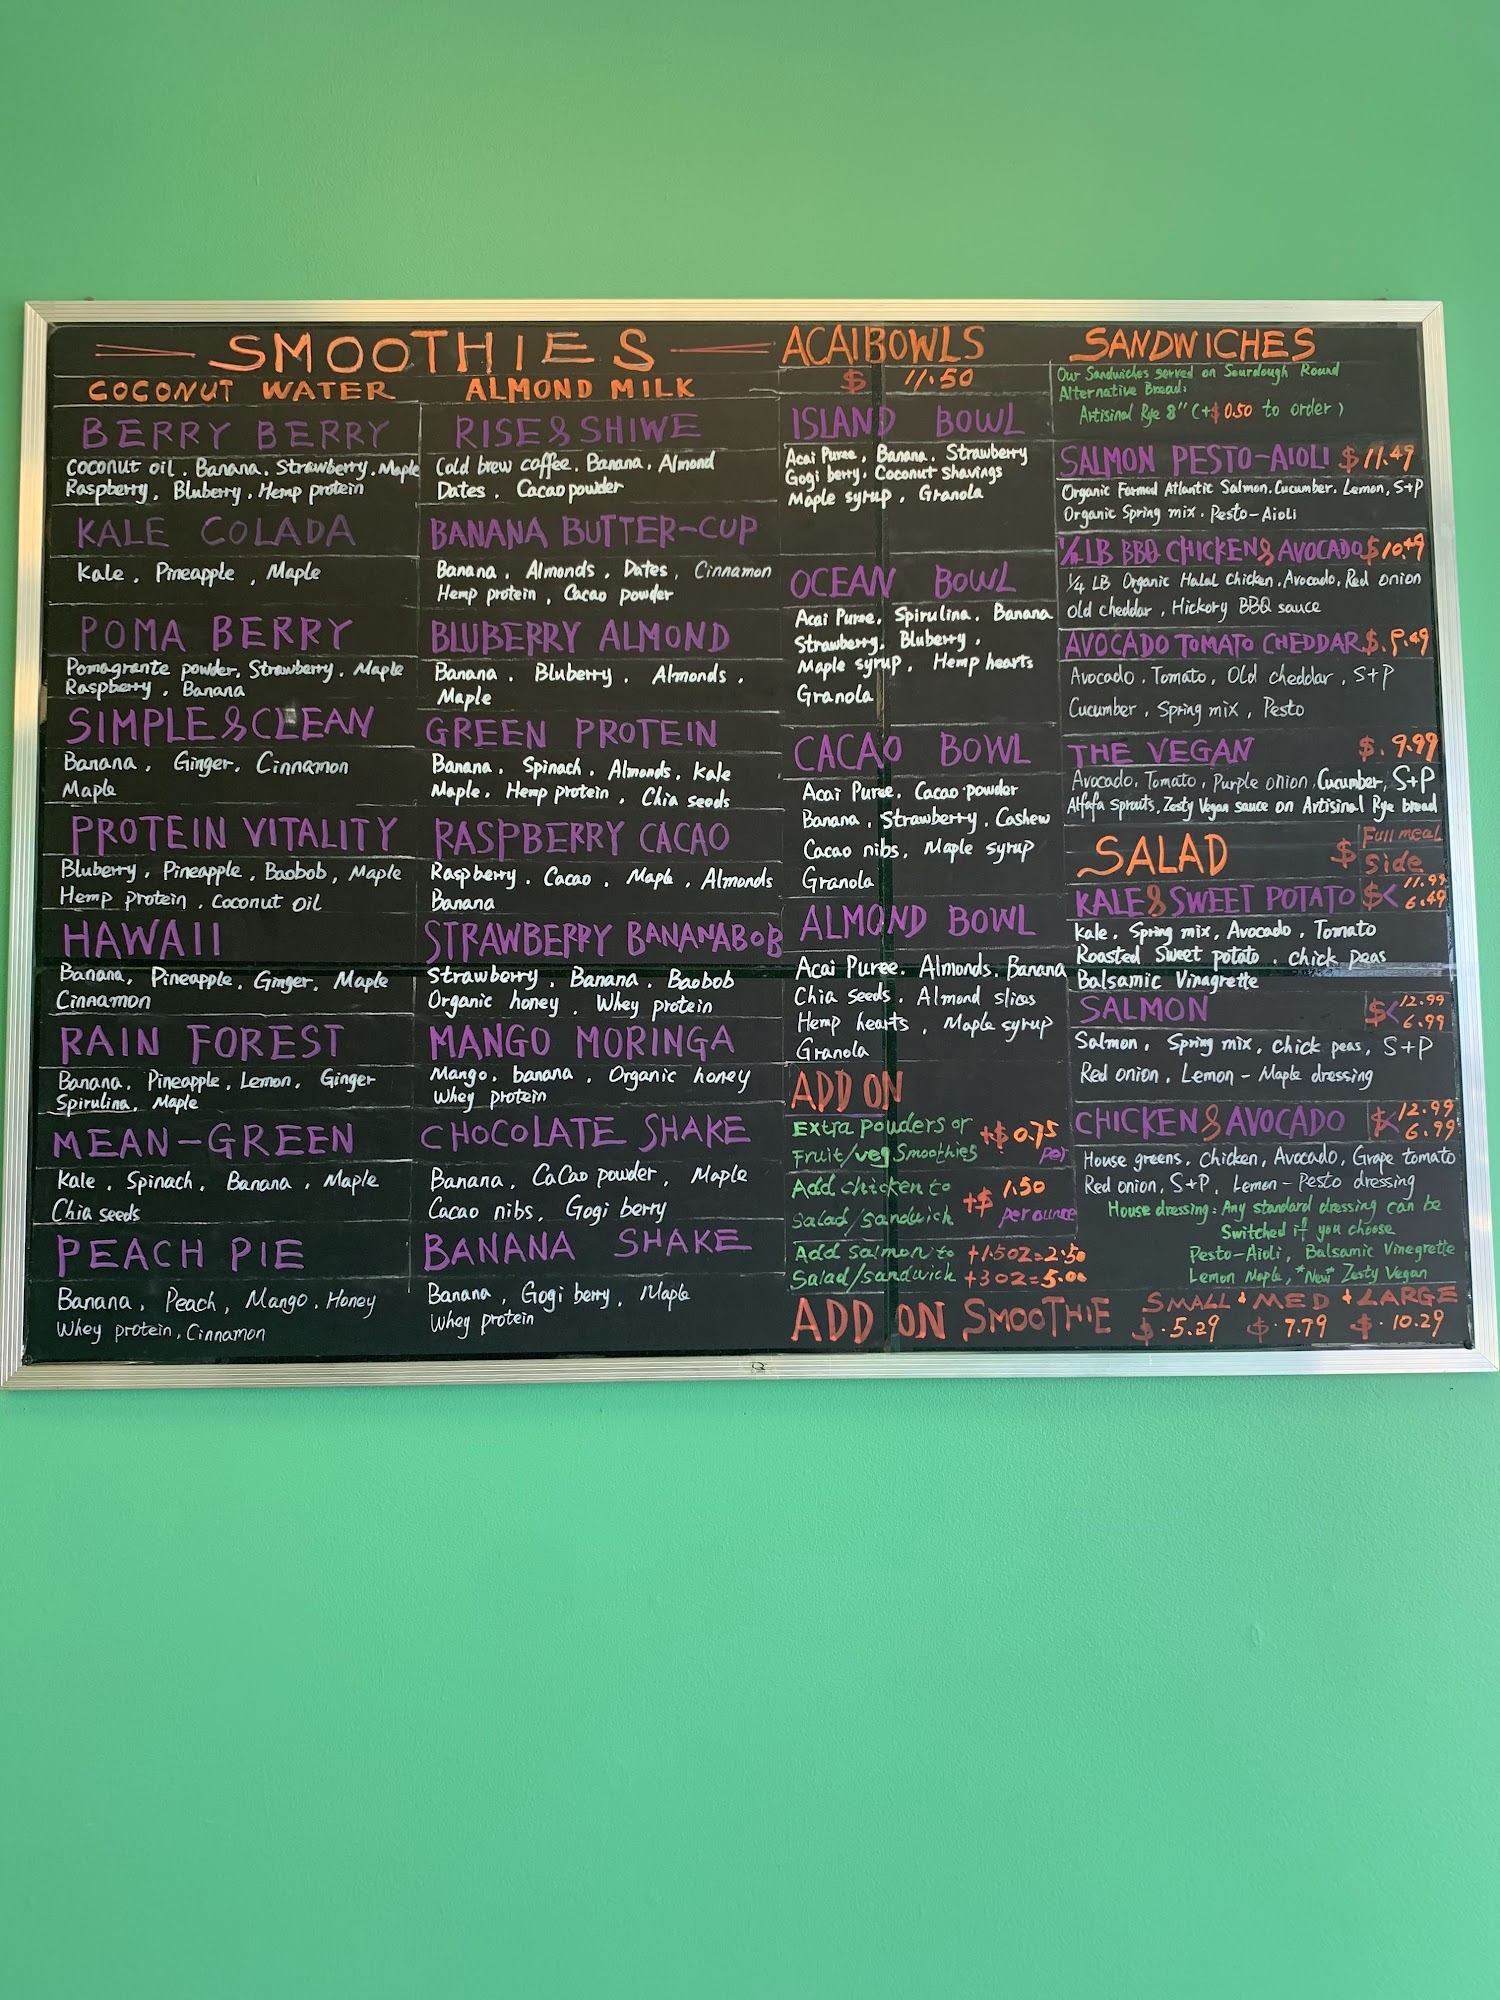 SMOOTHIES
COCONUT WATER
BERRY BERRY
Coconut oil, Banana, Strawberry, Maple
Raspberry, Bluberry, Hemp protein
KALE COLADA
Kale, Pineapple, Maple
POMA BERRY
Pomagrante powder, Strawberry, Maple
Raspberry, Banana
SIMPLE & CLEAN
Banana, Ginger, Cinnamon
Maple
PROTEIN VITALITY
Bluberry, Pineapple, Baobob, Maple
Hemp protein, Coconut oil
HAWAII
Banana, Pineapple, Ginger, Maple
Cinnamon
RAIN FOREST
Banana, Pineapple, Lemon, Ginger
Spirulina, Maple
MEAN-GREEN
Kale, Spinach, Banana, Maple
Chia seeds
PEACH PIE
Banana, Peach, Mango, Honey
Whey protein, Cinnamon
ALMOND MILK
RISE & SHIWE
Cold brew coffee, Banana, Almond
Dates, Cacao powder
BANANA BUTTER-CUP
Banana, Almonds, Dates, Cinnamon
Hemp protein, Cacao powder
BLUBERRY ALMOND
Banana, Bluberry, Almonds,
Maple
GREEN PROTEIN
Banana, Spinach, Almonds, Kale
Maple, Hemp protein, Chia seeds
RASPBERRY CACAO
Raspberry, Cacao, Maple, Almonds
Banana
STRAWBERRY BANANABOB
Strawberry, Banana, Baobob
Organic honey, Whey protein
MANGO MORINGA
Mango, banana, Organic honey
Whey protein
CHOCOLATE SHAKE
Banana, CaCao powder, Maple
Cacao nibs, Gogi berry
BANANA SHAKE
Banana, Gogi berry, Maple
Whey protein
ACAI BOWLS
$ 11.50
ISLAND BOWL
Acai Puree, Banana, Strawberry
Gogi berry, Coconut shavings
Maple syrup, Granola
OCEAN BOWL
Acai Puree, Spirulina, Banana
Strawberry, Bluberry,
Maple syrup, Hemp hearts
Granola
CACAO BOWL
Acai Puree, Cacao powder
Banana, Strawberry, Cashew
Cacao nibs, Maple syrup
Granola
ALMOND BOWL
Acai Puree, Almonds, Banana
Chia seeds, Almond slices
Hemp hearts, Maple syrup
Granola
ADD ON
Extra powders or
Fruit/veg Smoothies +$0.75 per
Add chicken to
Salad/sandwich +$ 1.50 per ounce
Add salmon to +1.5oz=2.50
Salad/sandwich +3oz=5.00
SANDWICHES
Our Sandwiches served on Sourdough Round
Alternative Bread:
Artisinal Rye 8" (+$0.50 to order)
SALMON PESTO-AIOLI $11.49
Organic Formed Atlantic Salmon, Cucumber, Lemon, S+P
Organic Spring mix, Pesto-Aioli
1/4 LB BBQ CHICKEN & AVOCADO $10.49
1/4 LB Organic Halal Chicken, Avocado, Red onion
Old cheddar, Hickory BBQ sauce
AVOCADO TOMATO CHEDDAR
Avocado, Tomato, Old cheddar, S+P
Cucumber, Spring mix, Pesto
THE VEGAN $.9.99
Avocado, Tomato, Purple onion, Cucumber, S+P
Alfafa sprouts, Zesty Vegan sauce on Artisinal Rye bread
SALAD $ Full meal
Side
KALE & SWEET POTATO $< 11.99
6.49
Kale, Spring mix, Avocado, Tomato
Roasted Sweet potato, chick peas
Balsamic Vinagrette
SALMON $< 12.99
6.99
Salmon, Spring mix, chick peas, S+P
Red onion, Lemon - Maple dressing
CHICKEN & AVOCADO $< 12.99
6.99
House greens, Chicken, Avocado, Grape tomato
Red onion, S+P, Lemon-Pesto dressing
House dressing: Any standard dressing can be
Switched if you choose
Pesto-Aioli, Balsamic Vinegrette
Lemon Maple, *New* Zesty Vegan
ADD ON SMOOTHIE
SMALL + MED + LARGE
$.5.29 $.7.79 $.10.29